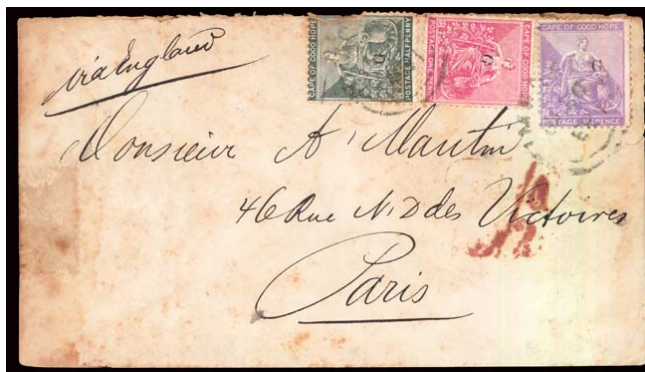 via England
CAPE OF GOOD HOPE
POSTAGE HALFPENNY
G
CAPE OF GOOD HOPE
POSTAGE ONE PENNY
G
CAPE OF GOOD HOPE
POSTAGE SIXPENCE
G
Monsieur A. Martin
46 Rue N. D des Victoires
Paris